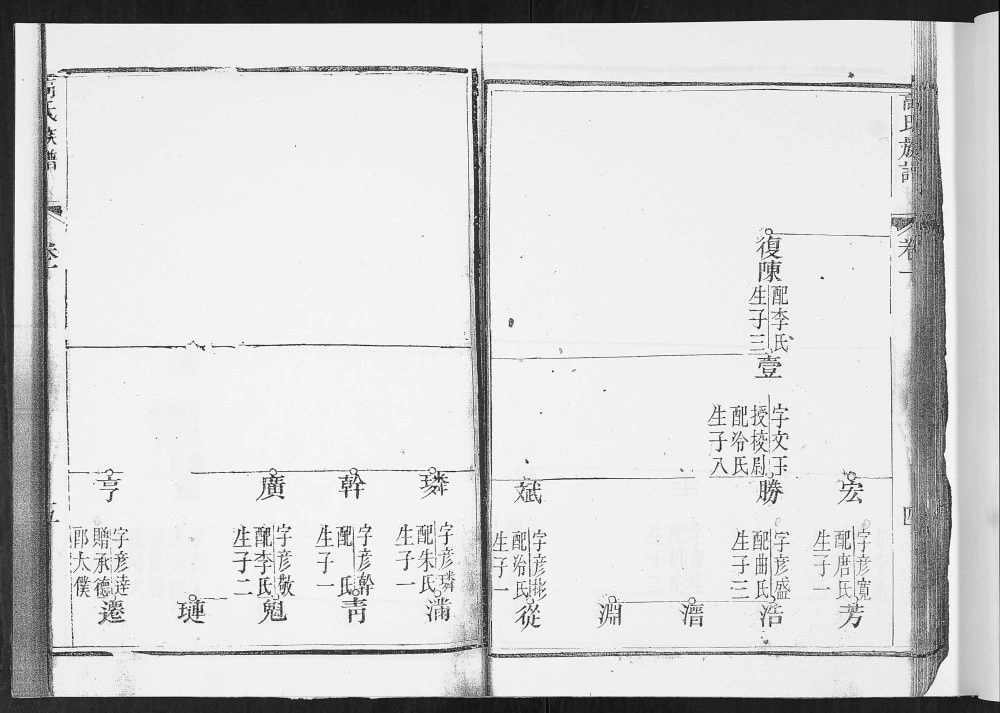 高氏族譜
卷一
四
復陳
配李氏
生子三
壹
字文玉
授校尉
配冷氏
生子八
宏
字彥寬
配唐氏
生子一
芳
勝
字彥盛
配曲氏
生子三
浩
濳
淵
斌
字彥彬
配冷氏
生子一
從
璘
字彥璘
配朱氏
生子一
滿
幹
字彥幹
配 氏
生子一
青
廣
字彥敬
配李氏
生子二
魁
璉
亨
字彥達
贈承德
郎太僕
遷
高氏族譜
卷一
五